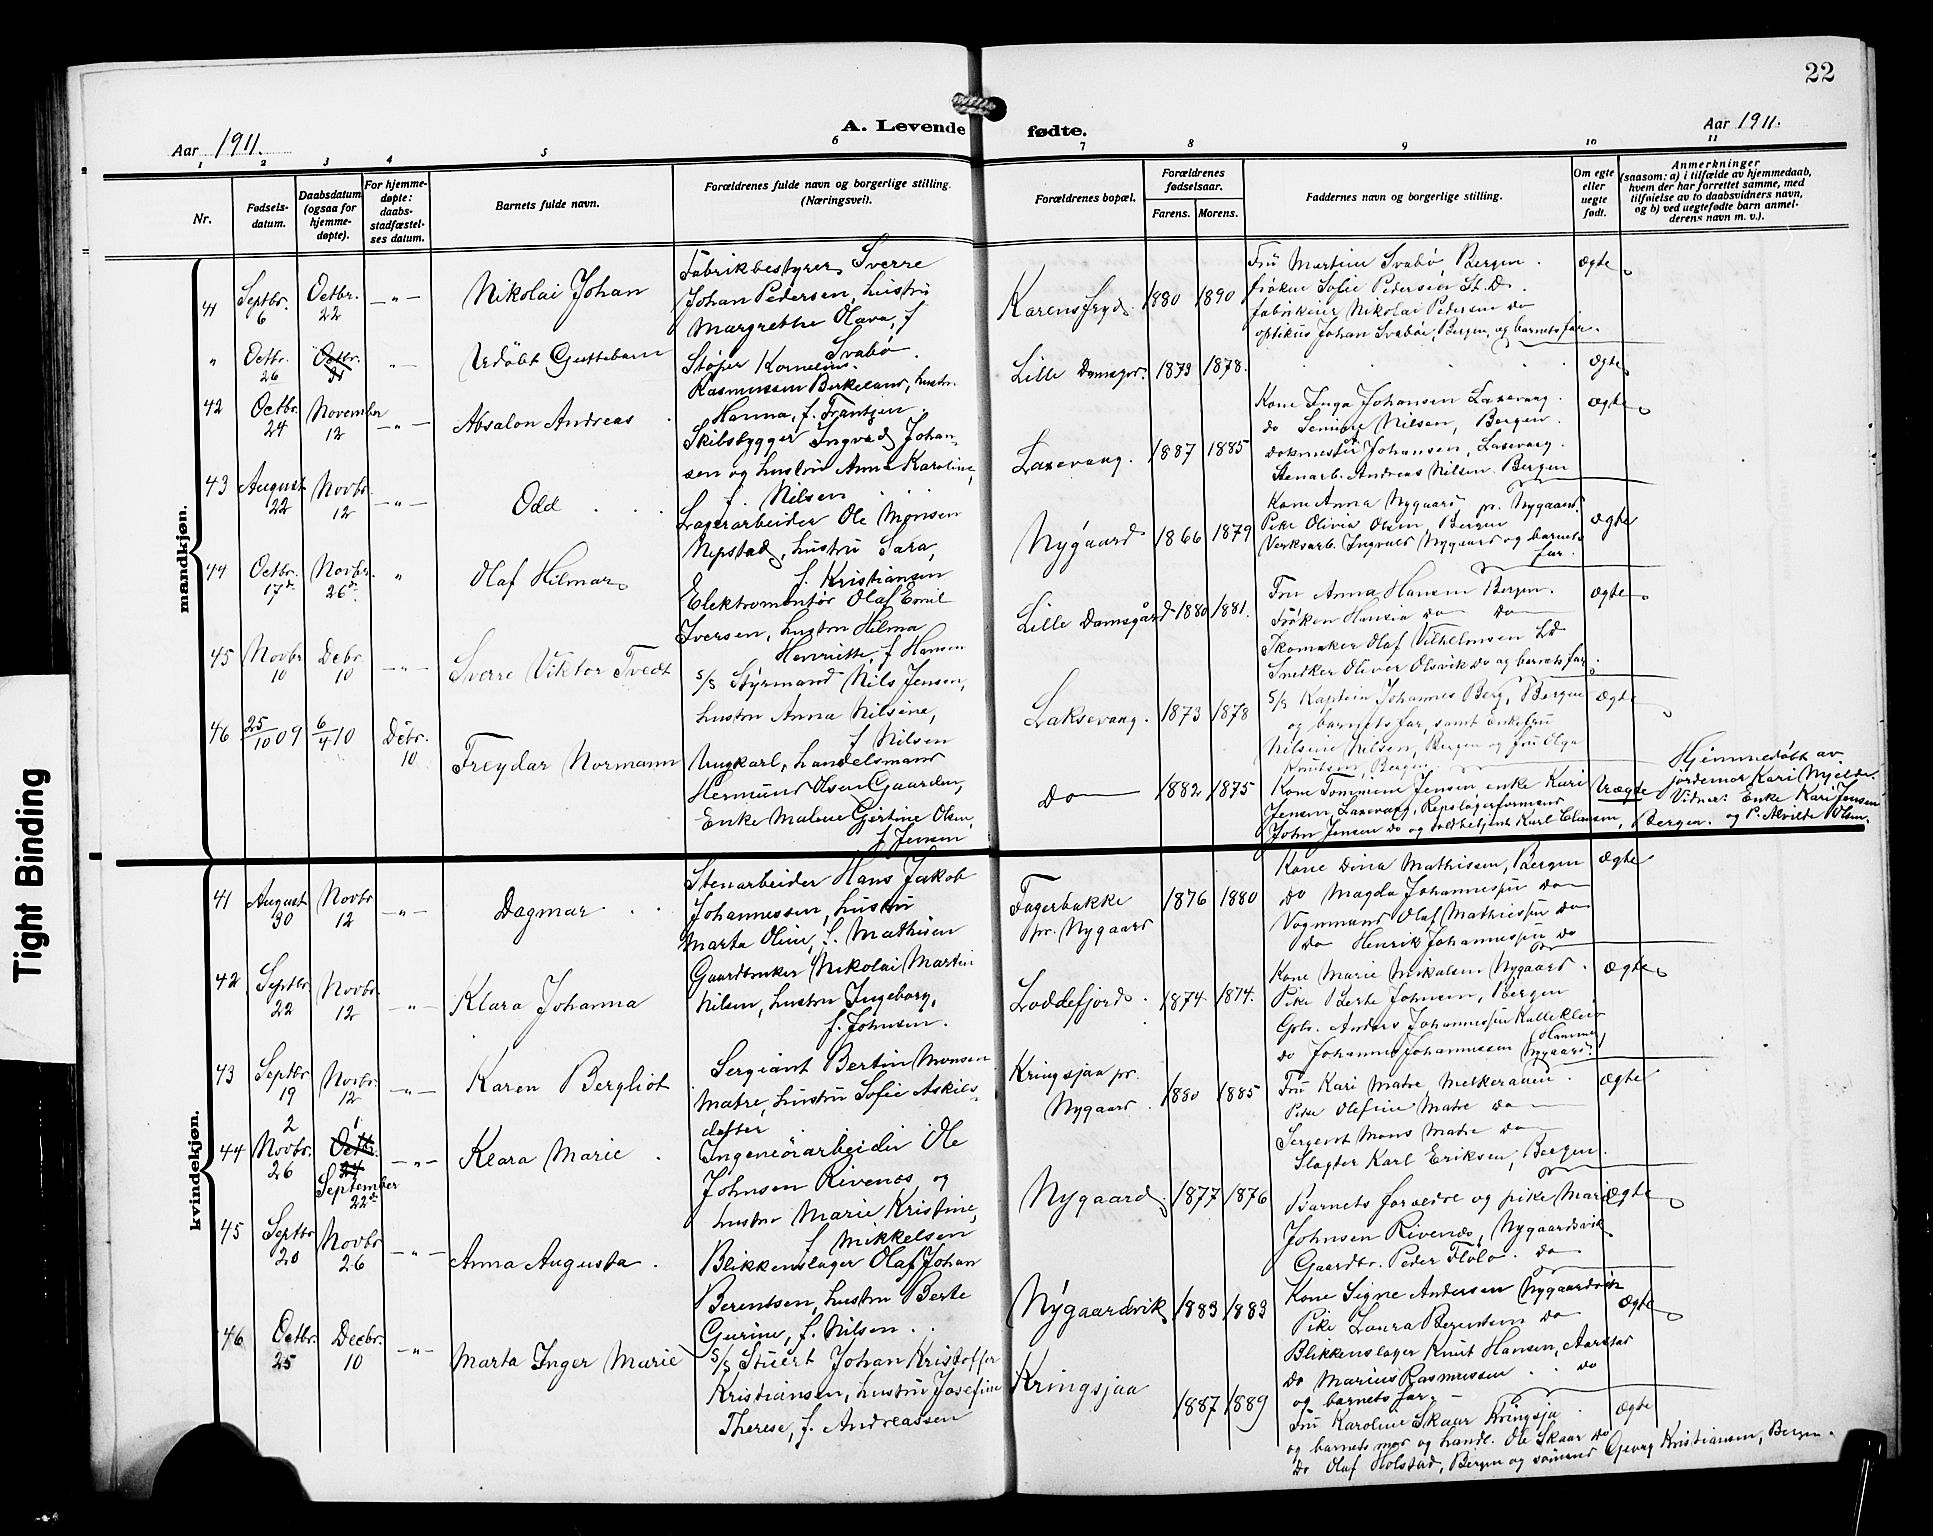 22
Aar 1911.
A. Levende fødte.
Aar 1911.
1 2 3 4 5 6 7 8 9 10 11
Nr.
Fødsels-
datum.
Daabsdatum
(ogsaa for
hjemme-
døpte).
For hjemme-
døpte:
daabs-
stadfæstel-
ses datum.
Barnets fulde navn.
Forældrenes fulde navn og borgerlige stilling.
(Næringsvei).
Forældrenes bopæl.
Forældrenes
fødselsaar.
Farens. Morens.
Faddernes navn og borgerlige stilling.
Om egte
eller
uegte
født.
Anmerkninger
(saasom: a) i tilfælde av hjemmedaab,
hvem der har forrettet samme, med
tilføielse av to daabsvidners navn,
og b) ved uegtefødte barn anmel-
derens navn m. v.).
mandkjøn.
41 Septbr. 6 Octbr. 22 — " — Nikolai Johan
Fabrikbestyrer Sverre
Johan Pedersen, hustru
Margrethe Olava, f.
Svabø
Karensfryd. 1880 1890
Fru Martine Svabø, Bergen.
frøken Sofie Pedersen St. D.
fabrikeier Nikolai Pedersen do
optikus Johan Svabøe, Bergen, og barnets far.
Ægte
" Octbr. 26 Octbr. 31 — " — Udøbt Guttebarn
Støper Kornelius
Rasmussen Birkeland, hustru
Hanna, f. Frantzen.
Lille Damsgrd. 1873 1878.
Ægte
42 Octbr. 24 November 12 — " — Absalon Andreas
Skibsbygger Ingvald Johan-
sen og hustru Anna Karoline,
f. Nilsen
Laxevaag. 1887 1885
Kone Inga Johansen Laxevaag.
do Semine Nilsen, Bergen
dokmester Johansen, Laxevaag.
Stenarb. Andreas Nilsen. Bergen
Ægte
43 August 22 Novbr. 12 — " — Odd
Lagerarbeider Ole Monsen
Nipstad, hustru Sara,
f. Kristiansen
Nygaard 1866 1879
Kone Anna Nygaard, pr. Nygaard.
Pike Olivia Olsen, Bergen
Verksarb. Ingvald Nygaard og barnets
far.
Ægte
44 Octbr. 17de Novbr. 26de " Olaf Hilmar
Elektromontør Olaf Emil
Iversen, hustru Hilma
Henriette, f. Hansen
Lille Damsgård 1880 1881.
Fru Anna Hansen Bergen.
Frøken Hansia do do
Skomaker Olaf Vilhelmsen LD
Snedker Oliver Olsvik do og barnets far.
Ægte
45 Novbr. 10 Debr. 10 — " — Sverre Viktor Tvedt
s/s Styrmand Nils Jensen,
hustru Anna Nilsine,
f. Nilsen
Laksevaag. 1873 1878
s/s Kaptein Johannes Berg, Bergen
og barnets far, samt Enkefru
Nilsine Nilsen, Bergen og fru Olga
Knutsen, Bergen.
Ægte
46 25/10 09 6/4 10 Debr. 10 Freydar Normann
Ungkarl, handelsmand
Hermund Olsen Gaarden,
Enke Malene Gjertine Olsen,
f. Jensen
do 1882 1875
Kone Tommine Jensen, enke Kari
Jensen Laxevaag, Repslagerformand
John Jensen do og toldbetjent Karl Clausen, Bergen.
Uægte
Hjemmedøbt av
jordemor Kari Mjelde.
Vidner: Enke Kari Jensen
og P. Alvilde Olsen.
kvindekjøn.
41 August 30 Novbr 12 — " — Dagmar
Stenarbeider Hans Jakob
Johannessen, hustru
Marta Oline, f. Mathisen
Fagerbakke
pr. Nygaard
1876 1880
Kone Dina Mathissen, Bergen
do Magda Johannessen do
Vognmand Olaf Mathiesen do
do Henrik Johannessen do
Ægte
42 Septbr. 22 Novbr. 12 — " — Klara Johanna
Gaardbruker Nikolai Martin
Nilsen, hustru Ingeborg,
f. Johnsen.
Loddefjord. 1874 1874.
Kone Marie Mikalsen Nygaard.
Pike Berte Johnsen, Bergen
Gbr. Anders Johannessen Kalleklev
do Johannes Johannessen
Nygaard.
Ægte
43 Septbr. 19 Novbr. 12 — " — Karen Bergliot
Sergiant Bertin Monsen
Matre, hustru Sofie Askils-
datter
Kringsjaa pr.
Nygaard.
1880 1885
Fru Kari Matre
Pike Olefine Matre do
Sergent Mons Matre do
Slagter Karl Eriksen, Bergen.
Ægte
44 2 Novbr. 26 1 Octbr. 24 September 22de — " — Klara Marie
Ingeniörarbeider Ole
Johnsen Rivenes, og
hustru Marie Kristine,
f. Mikkelsen
Nygaard. 1877 1876
Barnets forældre og pike Marie
Johnsen Rivenes, Nygaardsvik
Gaardbr. Peder Flölo. do
Ægte
45 Septbr. 20 Novbr 26 — " — Anna Augusta.
Blikkenslager Olaf Johan
Berentsen, hustru Berte
Gurine, f. Nilsen.
Nygaardsvik 1883 1883
Kone Signe Andersen Nygaardsvik
Pike Laura Berentsen do
Blikkenslager Knut Hansen, Aarstad
do Marius Rasmussen do
og barnets far.
Ægte
46 Octbr. 25 Decbr. 10 — " — Marta Inger Marie
s/s Stuert Johan Kristoffer
Kristiansen, hustru Josefine
Therese, f. Andreassen
Kringsjaa 1887 1889
Fru Karoline Skaar Kringsja
og barnets mor og handl. Ole Skaar do
do Olaf Holstad, Bergen og sømand Georg Kristiansen, Bergen.
Ægte
Tight Binding